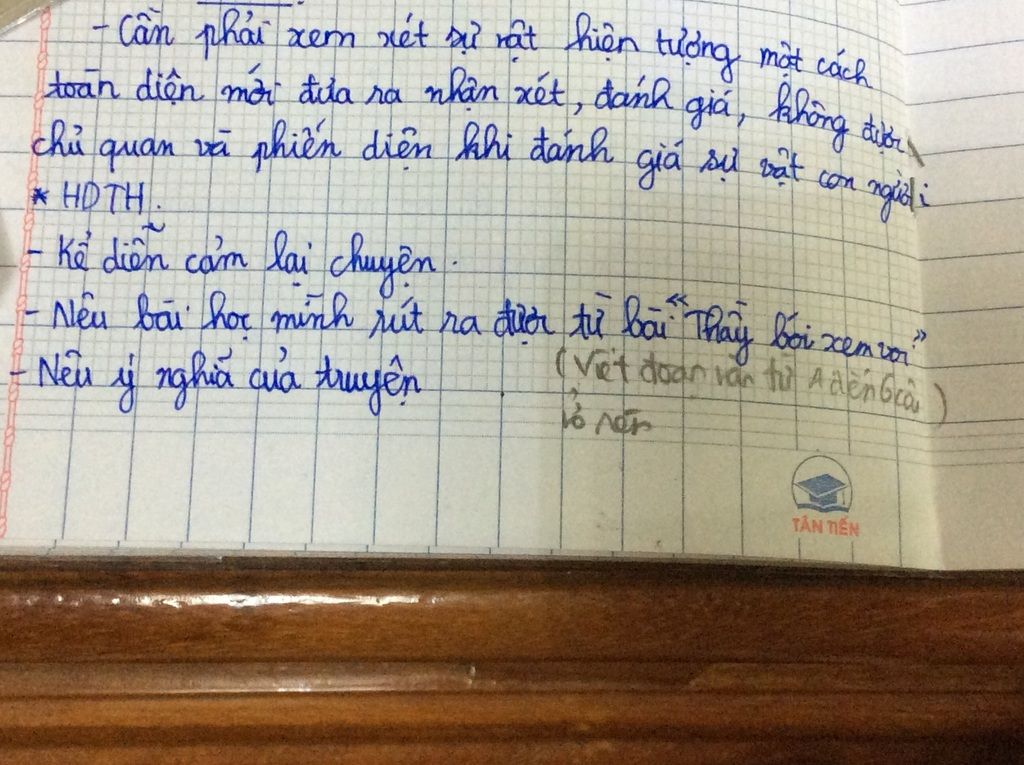 - Cần phải xem xét sự vật hiện tượng một cách
toàn diện mới đưa ra nhận xét, đánh giá, không được
chủ quan và phiến diện khi đánh giá sự vật con người
* HDTH.
- Kể diễn cảm lại chuyện.
- Nêu bài học mình rút ra được từ bài "Thầy bói xem voi"
- Nêu ý nghĩa của truyện (Viết đoạn văn từ 4 đến 6 câu)
TÂN TIẾN